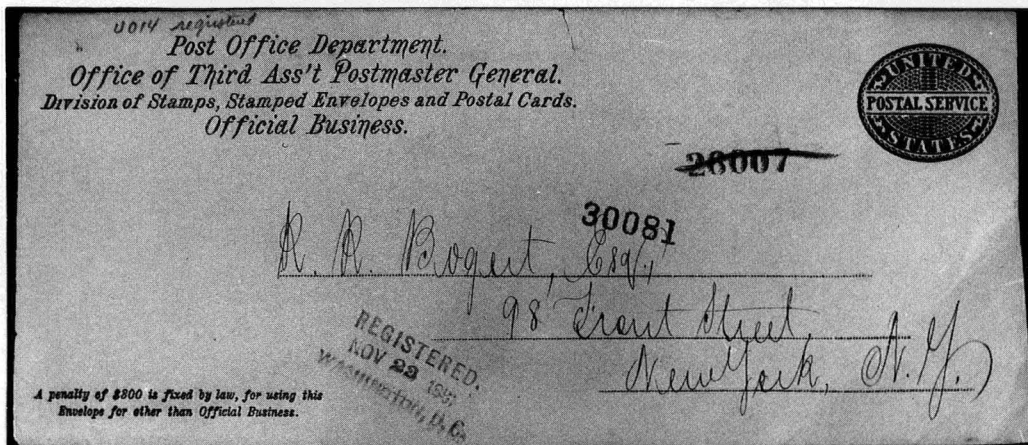 UO14 registered
Post Office Department.
Office of Third Ass't Postmaster General.
Division of Stamps, Stamped Envelopes and Postal Cards.
Official Business.
UNITED
POSTAL SERVICE
STATES
26007
30081
R. R. Bogert, Esq.,
98 Trant Street,
New York, N.Y.
REGISTERED.
NOV 22 188
WASHINGTON, D.C.
A penalty of $300 is fixed by law, for using this
Envelope for other than Official Business.